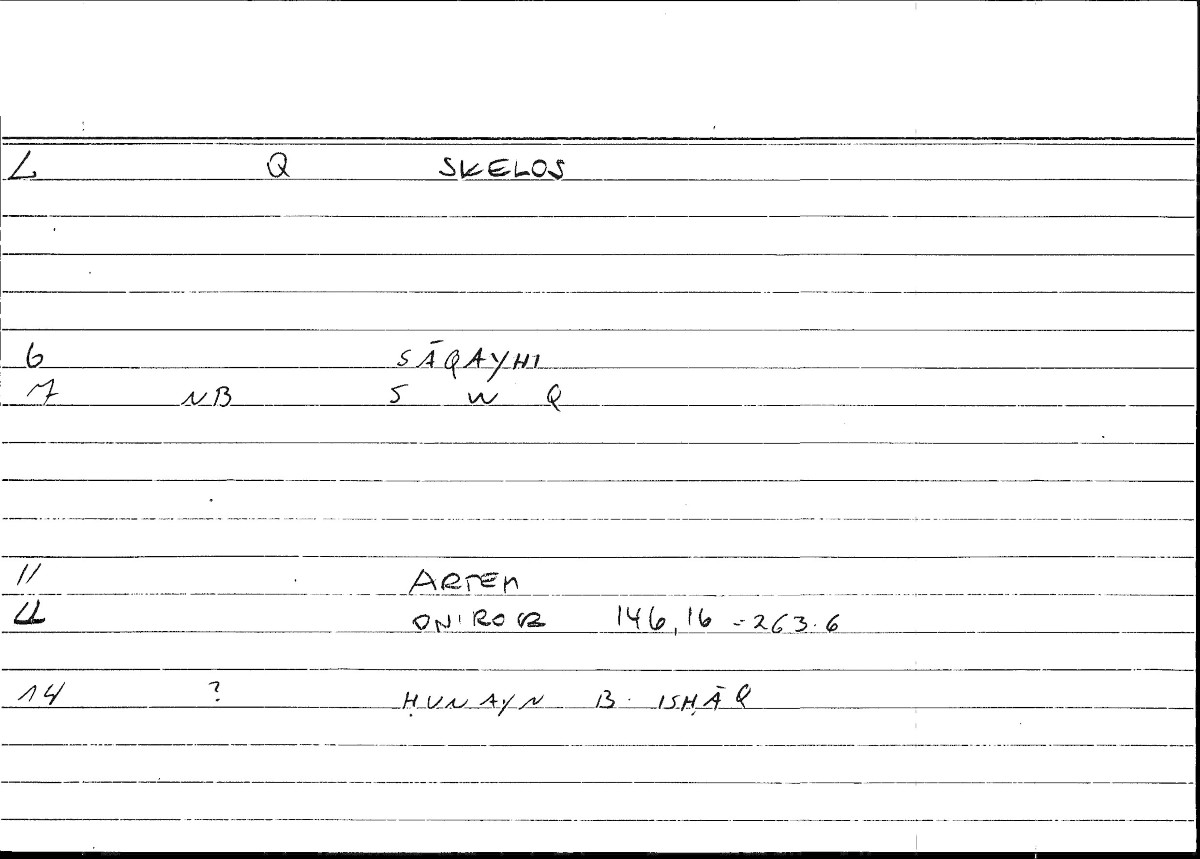 L Q SKELOS
6 SĀQAYHI
7 NB S W Q
11 ARTEM
LL ONIROCR 146,16 = 263.6
14 ? ḤUNAYN B. ISḤĀQ